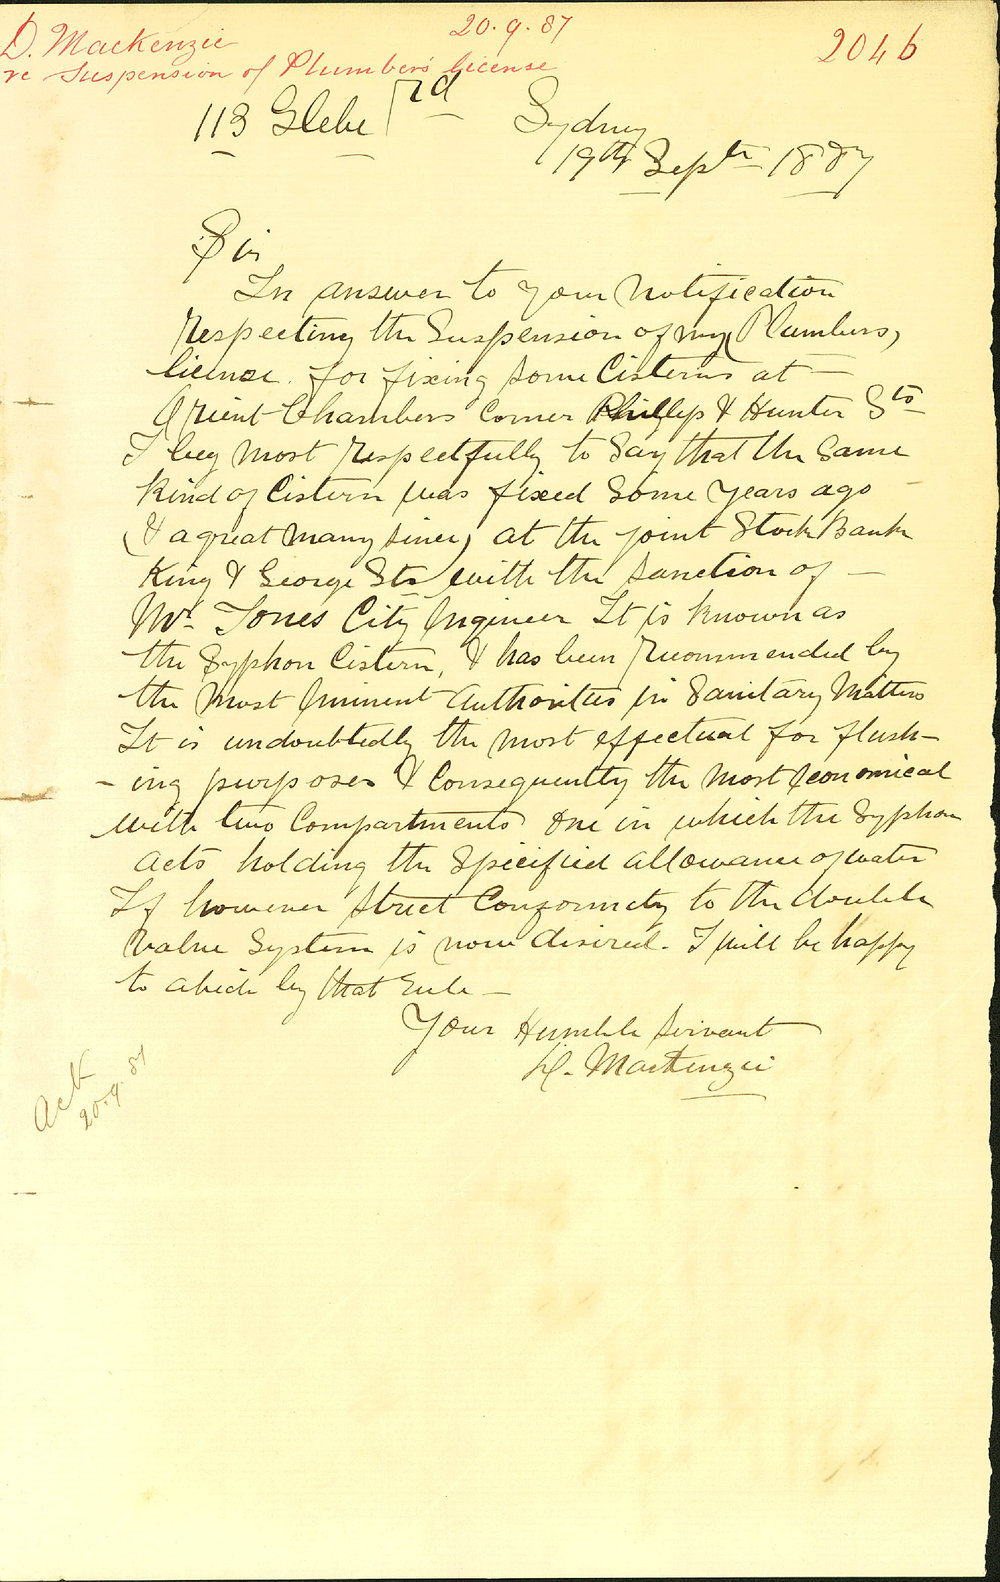 D. Mackenzie 20.9.87 2046
re Suspension of Plumbers' license
113 Glebe Rd Sydney
19th Septr 1887
Sir
In answer to your notification
respecting the Suspension of my Plumbers,
license. for fixing some Cisterns at —
Orient Chambers Corner Phillip & Hunter Sts
I beg most respectfully to say that the same
kind of Cistern was fixed some years ago —
(& a great many since) at the joint Stock Bank
King & George Sts with the sanction of —
Mr. Jones City Engineer It is known as
the Syphon Cistern, & has been recommended by
the most Eminent authorities in Sanitary Matters
It is undoubtedly the most effectual for flush-
-ing purposes & Consequently the most Economical
with two Compartments one in which the Syphon
acts holding the Specified allowance of water
If however strict Conformity to the double
valve System is now desired. I will be happy
to abide by that rule —
Your Humble Servant
D. Mackenzie
Ack
20.9.87